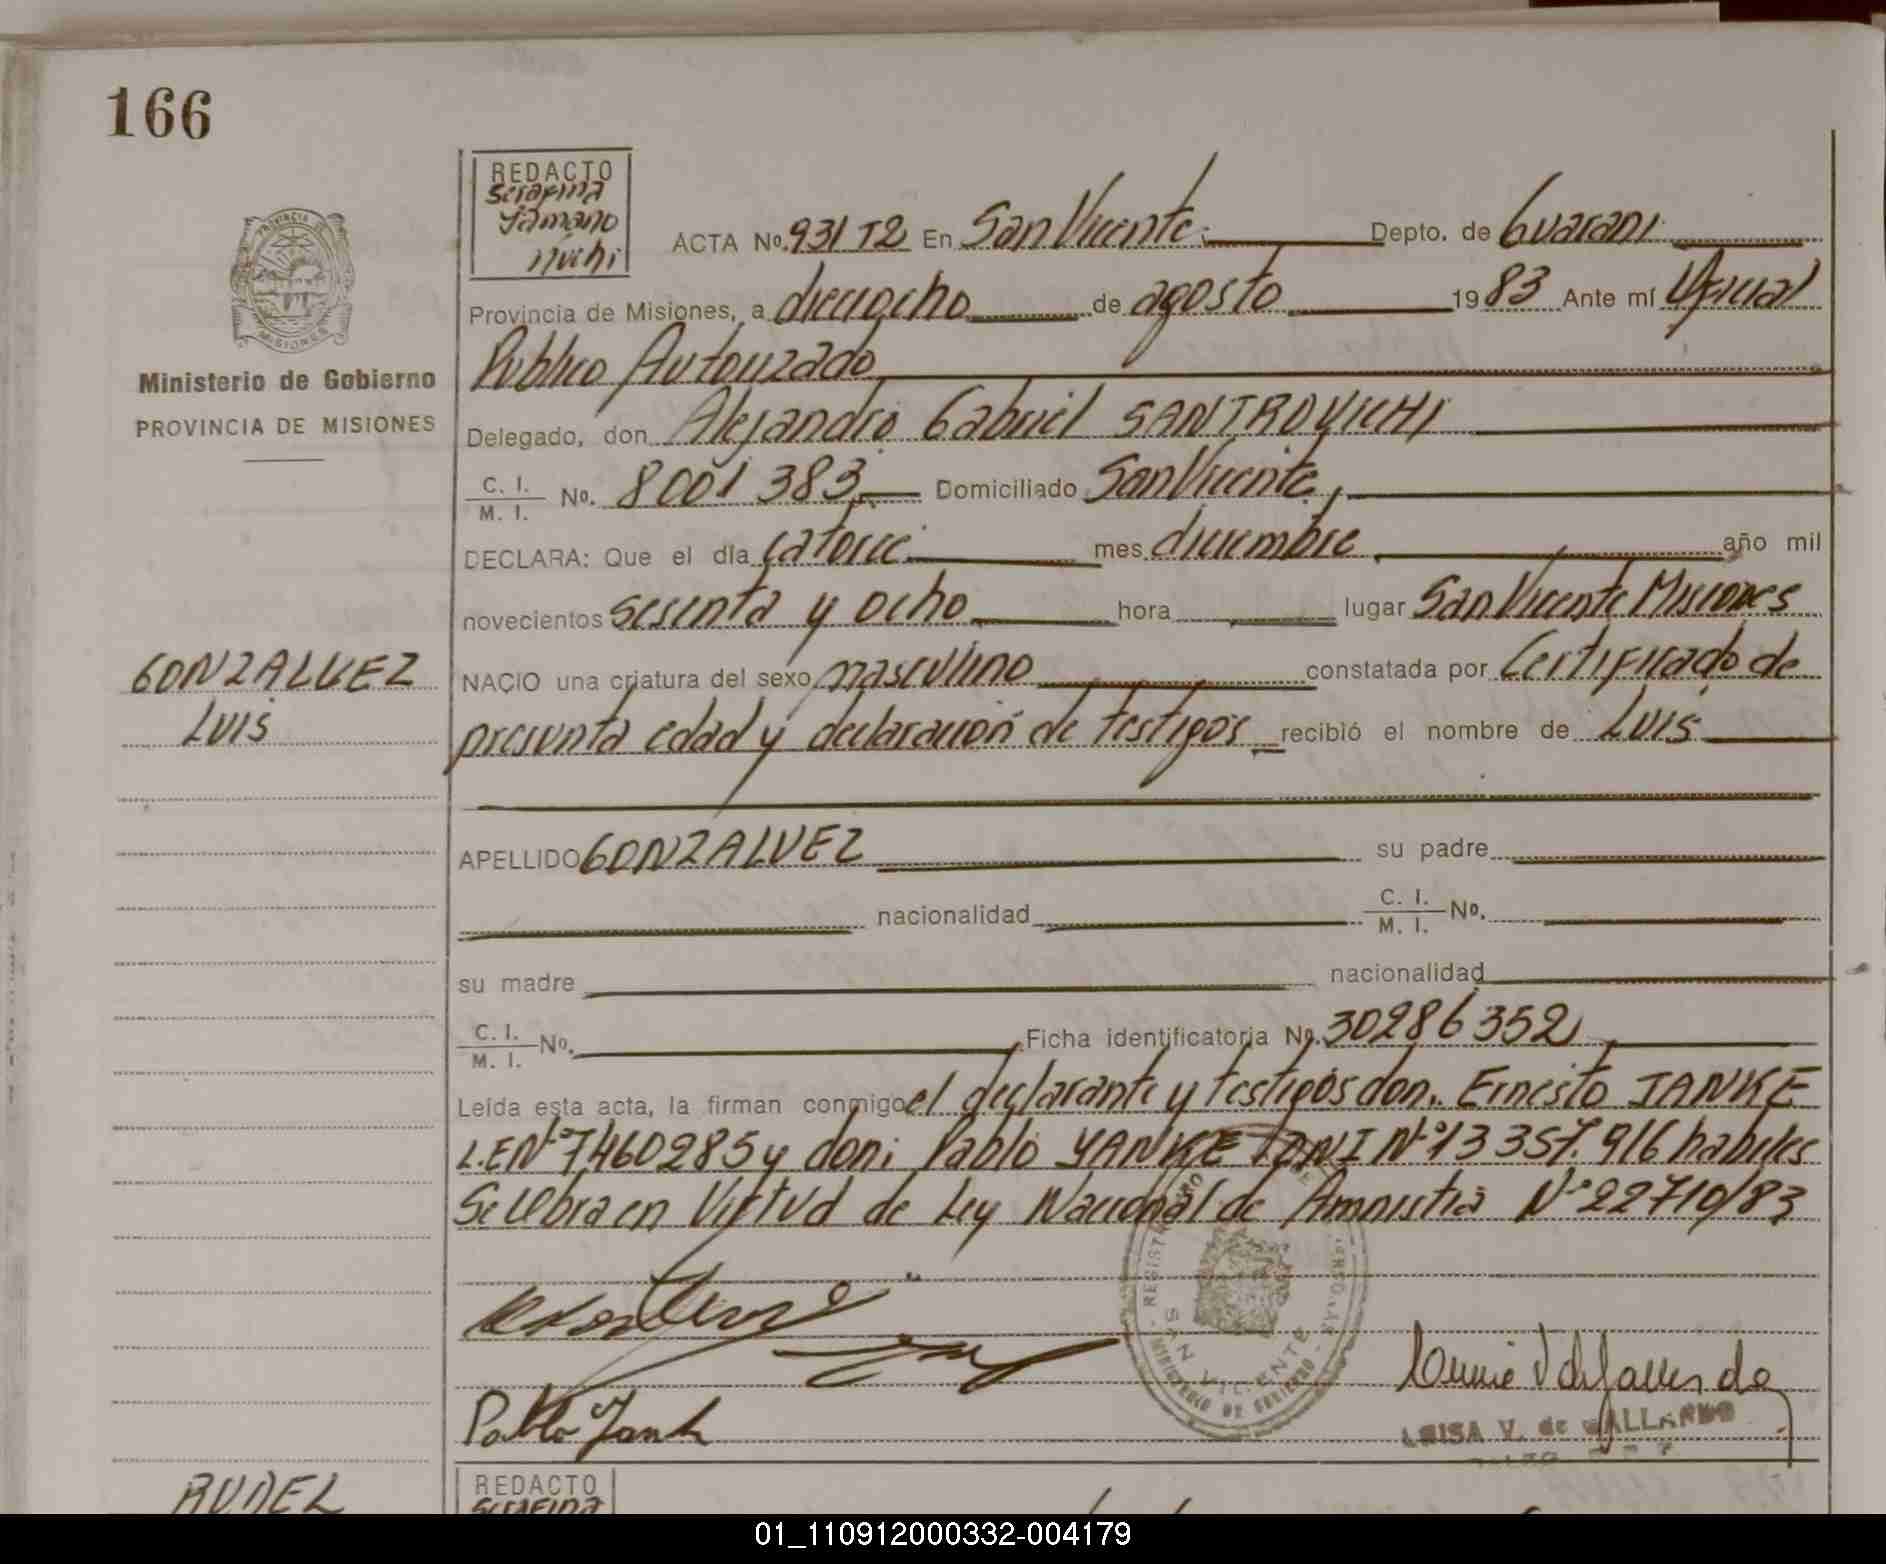 166
REDACTO
Serafina
Yamano
ACTA No. 931 T2 En San Vicente. Depto. de Guarani
Provincia de Misiones, a dieciocho de agosto 1983 Ante mí Oficial
Publico Autorizado
Ministerio de Gobierno
PROVINCIA DE MISIONES
Delegado, don Alejandro Gabriel SANTROVICHI
C. I.
M. I. No. 8001383 Domiciliado San Vicente,
DECLARA: Que el día catorce mes diciembre año mil
novecientos sesenta y ocho hora lugar San Vicente Misiones
GONZALVEZ
LUIS
NACIO una criatura del sexo masculino constatada por Certificado de
presunta edad y declaración de testigos recibió el nombre de Luis
APELLIDO GONZALVEZ su padre
nacionalidad C. I.
M. I. No.
su madre nacionalidad
C. I.
M. I. No. Ficha identificatoria No. 30286352
Leída esta acta, la firman conmigo el declarante y testigos don. Ernesto IANKE
L.E Nº 7460285 y don: Pablo YANKE DNI Nº 13357.916 habiles
Se labra en Virtud de Ley Nacional de Amnistia Nº 22710/83
SAN VICENTE
MINISTERIO DE GOBIERNO
LUISA V. de GALLARDO
REDACTO
SERAFINA
01_110912000332-004179